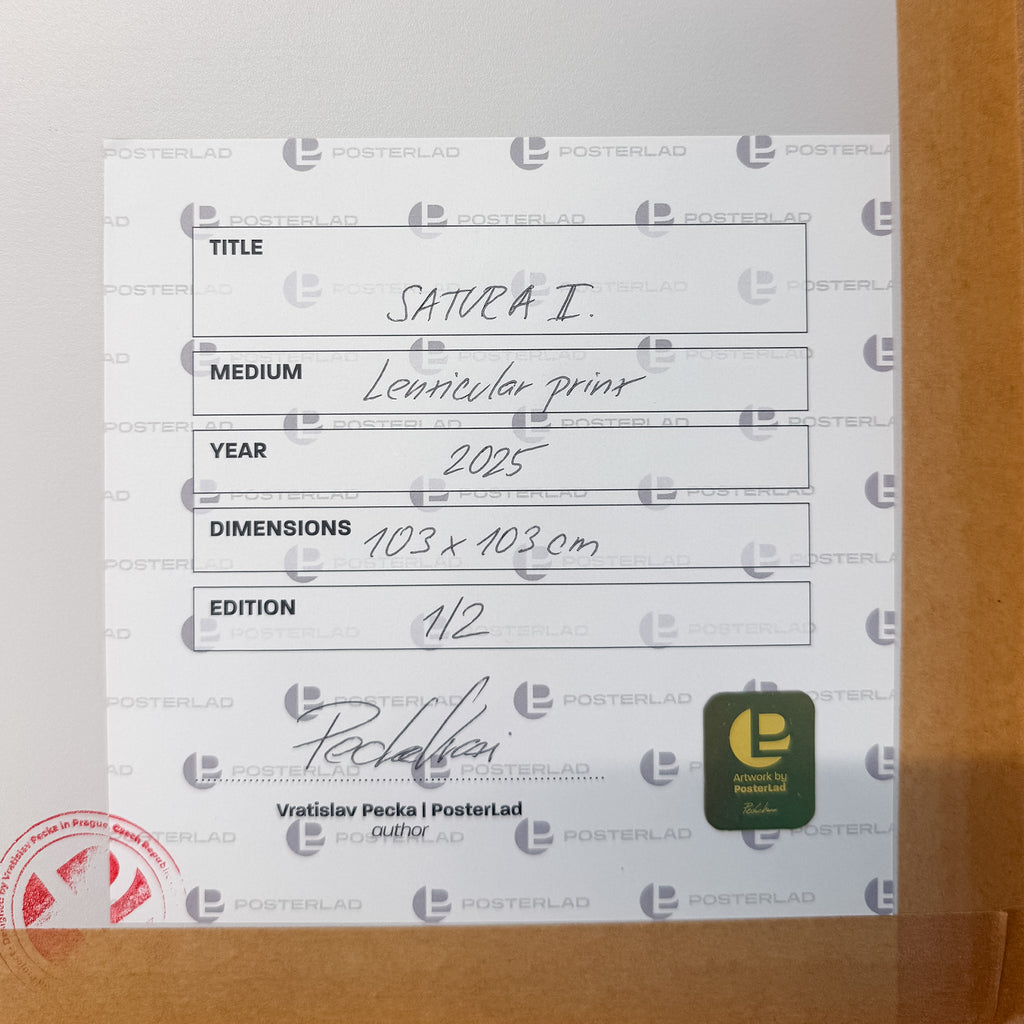 TITLE
SATURA II.
MEDIUM
Lenticular print
YEAR
2025
DIMENSIONS
103 x 103 cm
EDITION
1/2
Vratislav Pecka | PosterLad
author
Artwork by
PosterLad
Designed by Vratislav Pecka in Prague, Czech Republic
POSTERLAD